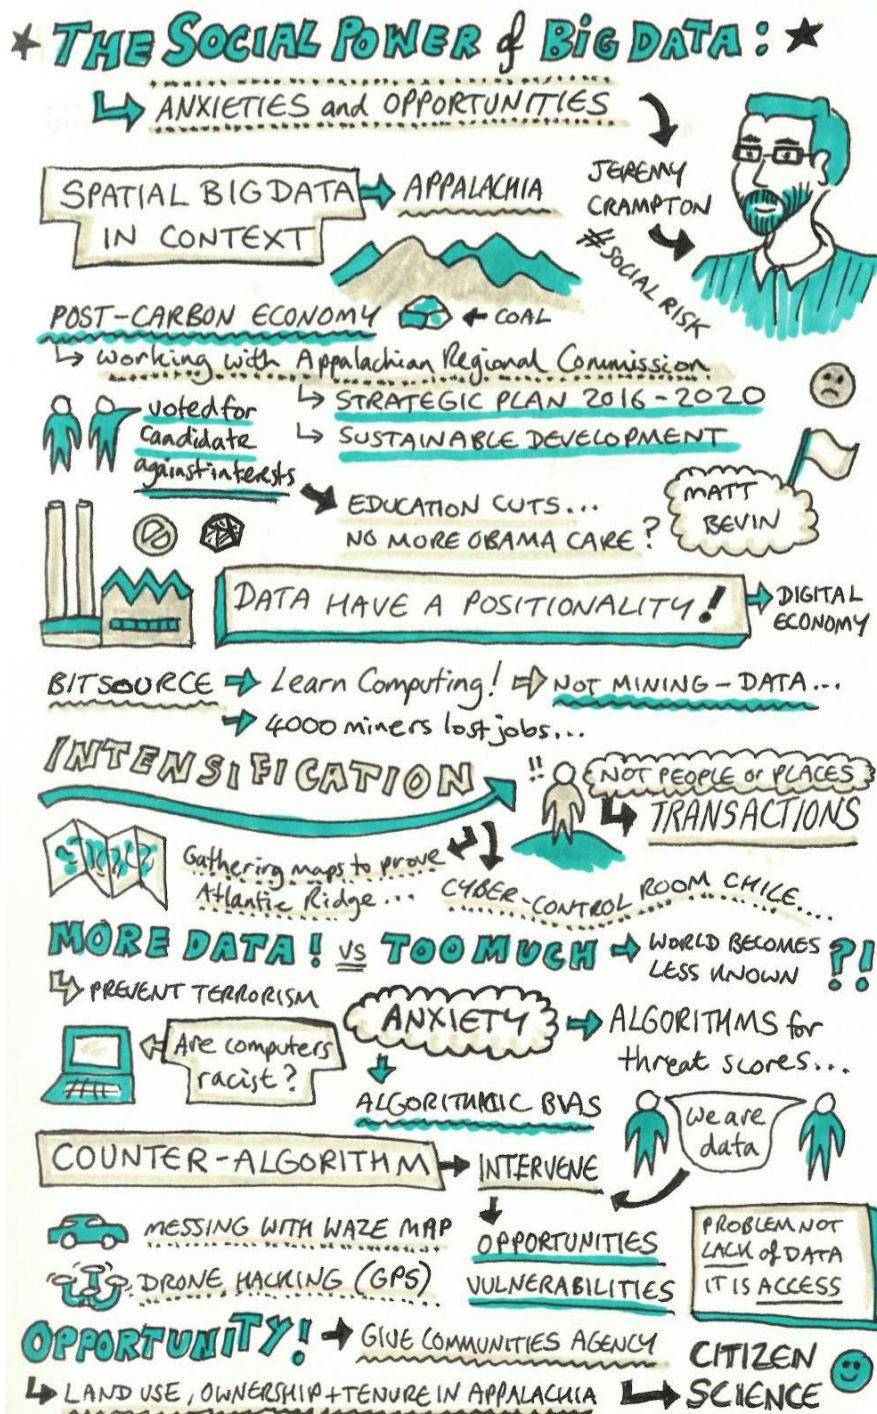 THE SOCIAL POWER of BIG DATA:
ANXIETIES and OPPORTUNITIES
JEREMY
CRAMPTON
#SOCIAL RISK
SPATIAL BIG DATA
IN CONTEXT
APPALACHIA
POST-CARBON ECONOMY
COAL
working with Appalachian Regional Commission
STRATEGIC PLAN 2016-2020
SUSTAINABLE DEVELOPMENT
voted for
candidate
against interests
EDUCATION CUTS...
NO MORE OBAMA CARE?
MATT
BEVIN
DATA HAVE A POSITIONALITY!
DIGITAL
ECONOMY
BITSOURCE
Learn Computing!
NOT MINING-DATA...
4000 miners lost jobs...
INTENSIFICATION
!!
NOT PEOPLE or PLACES
TRANSACTIONS
Gathering maps to prove
Atlantic Ridge...
CYBER-CONTROL ROOM CHILE....
MORE DATA! VS TOO MUCH
WORLD BECOMES
LESS KNOWN
?!
PREVENT TERRORISM
Are computers
racist?
ANXIETY
ALGORITHMS for
threat scores...
ALGORITHMIC BIAS
we are
data
COUNTER-ALGORITHM
INTERVENE
MESSING WITH WAZE MAP
DRONE HACKING (GPS)
OPPORTUNITIES
VULNERABILITIES
PROBLEM NOT
LACK of DATA
IT IS ACCESS
OPPORTUNITY!
GIVE COMMUNITIES AGENCY
LAND USE, OWNERSHIP + TENURE IN APPALACHIA
CITIZEN
SCIENCE